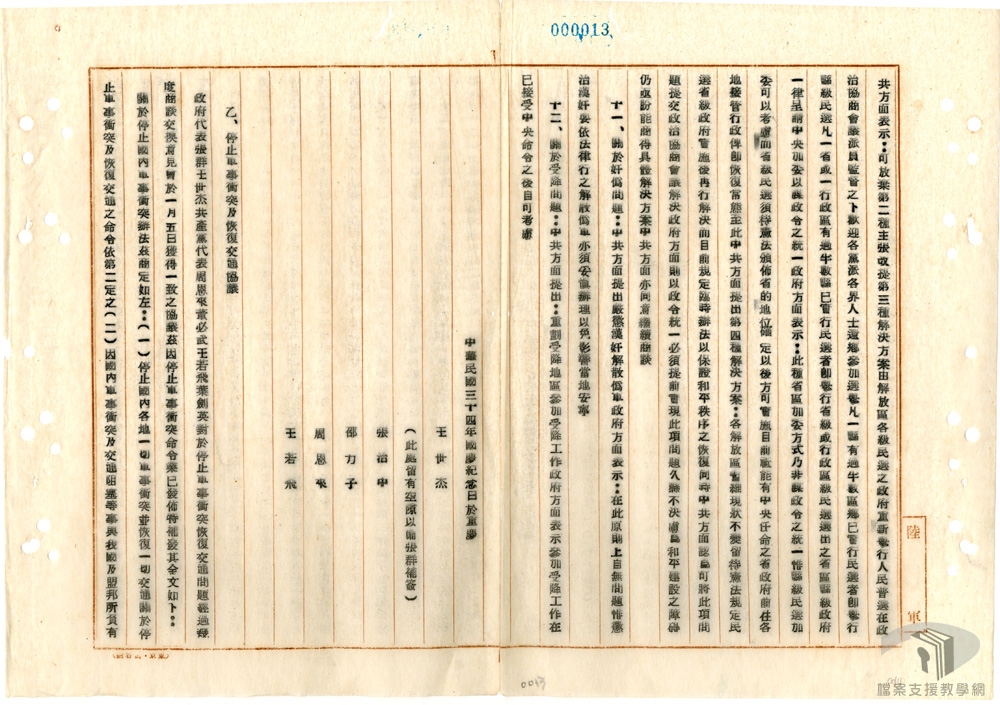 000013
共方面表示：可放棄第二種主張改提第三種解決方案由解放區各級民選之政府重新舉行人民普選在政
治協商會議派員監督之下歡迎各黨派各界人士還鄉參加選舉凡一縣有過半數區鄉已實行民選者即舉行
縣級民選凡一省或一行政區有過半數縣已實行民選者即舉行省級或行政區級民選選出之省區縣級政府
一律呈請中央加委以義政令之統一政府方面表示：此種省區加委方式乃非謀政令之統一惟縣級民選加
委可以考慮而省級民選須待憲法頒佈省的地位確定以後方可實施目前祗能有中央任命之省政府前往各
地接管行政俾即恢復常態至此中共方面提出第四種解決方案：各解放區暫維現狀不變留待憲法規定民
選省級政府實施後再行解決而目前規定臨時辦法以保證和平秩序之恢復同時中共方面認為可將此項問
題提交政治協商會議解決政府方面則以政令統一必須提前實現此項問題久懸不決慮為和平建設之障碍
仍亟盼能商得具體解決方案中共方面亦同意繼續商談
十一、關於奸偽問題：中共方面提出嚴懲漢奸解散偽軍政府方面表示：在此原則上自無問題惟懲
治漢奸要依法律行之解散偽軍亦須妥慎辦理以免影響當地安寧
十二、關於受降問題：中共方面提出：重劃受降地區參加受降工作政府方面表示參加受降工作在
已接受中央命令之後自可考慮
中華民國三十四年國慶紀念日於重慶
王世杰
（此處留有空隙以備張群補簽）
張治中
邵力子
周恩來
王若飛
乙、停止軍事衝突及恢復交通協議
政府代表張群王世杰共產黨代表周恩來董必武王若飛葉劍英對於停止軍事衝突恢復交通問題經過幾
度商談交換意見曾於一月五日獲得一致之協議茲因停止軍事衝突命令業已發佈特補發其全文如下：
關於停止國內軍事衝突辦法茲商定如左：（一）停止國內各地一切軍事衝突並恢復一切交通關於停
止軍事衝突及恢復交通之命令依第二定之（二）因國內軍事衝突及交通阻塞等事與我國及盟邦所負有
陸
軍
0013
檔案支援教學網